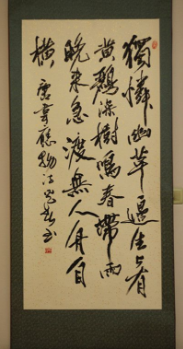 獨憐幽草邊生上有
黃鸝深樹鳴春帶雨
晚來急渡無人舟自
橫 唐韋應物詩